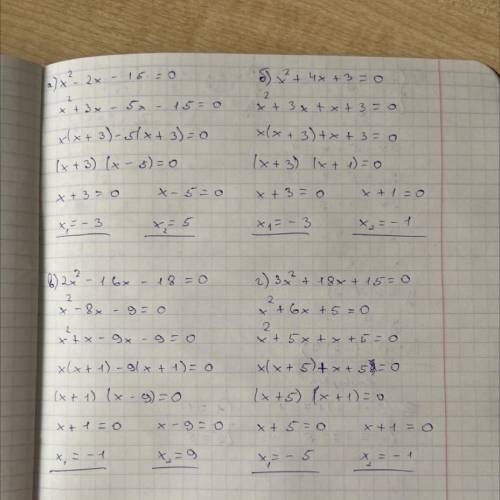 а) x² - 2x - 15 = 0
x² + 3x - 5x - 15 = 0
x(x + 3) - 5(x + 3) = 0
(x + 3) (x - 5) = 0
x + 3 = 0 x - 5 = 0
x₁ = - 3 x₂ = 5
б) x² + 4x + 3 = 0
x² + 3x + x + 3 = 0
x(x + 3) + x + 3 = 0
(x + 3) (x + 1) = 0
x + 3 = 0 x + 1 = 0
x₁ = - 3 x₂ = - 1
в) 2x² - 16x - 18 = 0
x² - 8x - 9 = 0
x² + x - 9x - 9 = 0
x(x + 1) - 9(x + 1) = 0
(x + 1) (x - 9) = 0
x + 1 = 0 x - 9 = 0
x₁ = - 1 x₂ = 9
г) 3x² + 18x + 15 = 0
x² + 6x + 5 = 0
x² + 5x + x + 5 = 0
x(x + 5) + x + 5 = 0
(x + 5) (x + 1) = 0
x + 5 = 0 x + 1 = 0
x₁ = - 5 x₂ = - 1